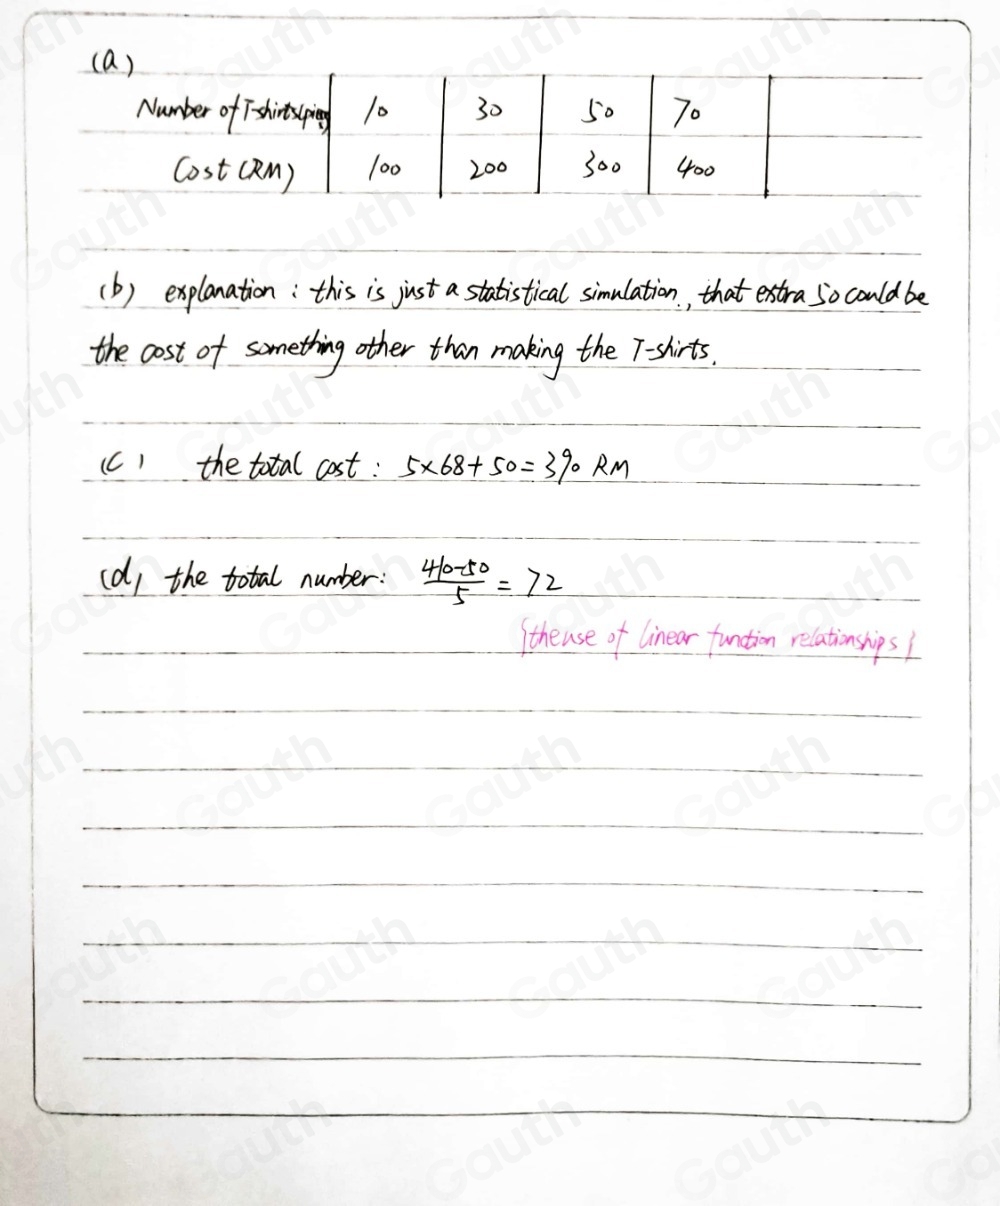 (a)
Number of T-shirts(pieces) 10 30 50 70
Cost (RM) 100 200 300 400
(b) explanation : this is just a statistical simulation., that extra 50 could be
the cost of something other than making the T-shirts.
(c) the total cost : 5×68+50=390 RM
(d) the total number: \frac{410-50}{5} = 72
{the use of linear function relationships}